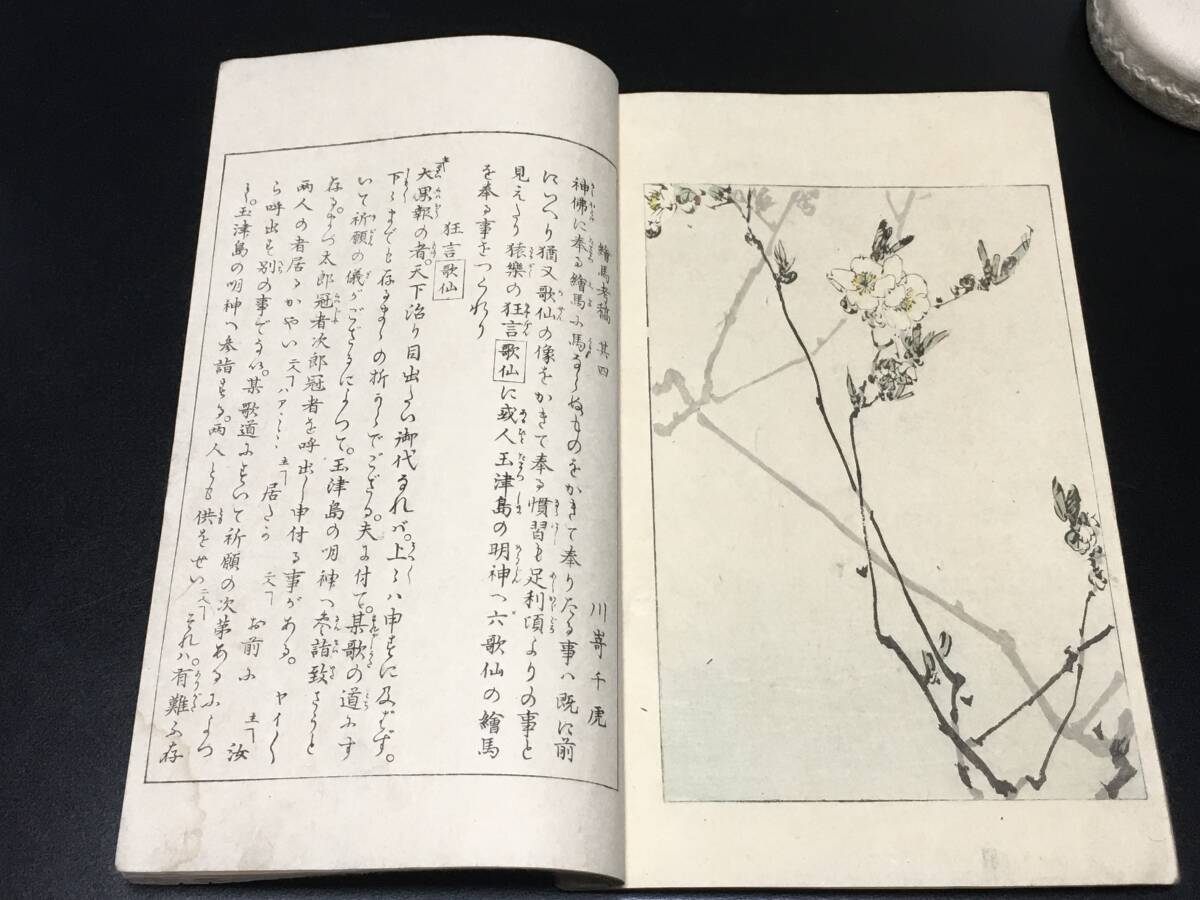 繪馬考稿　其四
川嵜千虎
神佛に奉る繪馬に馬ならぬものをかきて奉りたる事ハ既に前
にいへり猶又歌仙の像をかきて奉る慣習も足利頃よりの事と
見えたり猿樂の狂言歌仙に或人玉津島の明神へ六歌仙の繪馬
を奉る事をつくれり
狂言歌仙
大果報の者。天下治り目出たい御代なれバ。上々ハ申すに及ばず。
下々までも存るまゝの折からでござる。夫に付て。某歌の道にす
いて祈願の儀がござるによつて。玉津島の明神へ参詣致さうと
存る。まづ太郎冠者次郎冠者を呼出し申付る事がある。ヤイ〳〵
両人の者居るかやい 二人 ハアヽヽ 主 居たか 二人 お前に 主 汝
ら呼出す別の事でない。某歌道にすいて祈願の次第あるによつ
て。玉津島の明神へ参詣する。両人とも供をせい 二人 それハ。有難ふ存